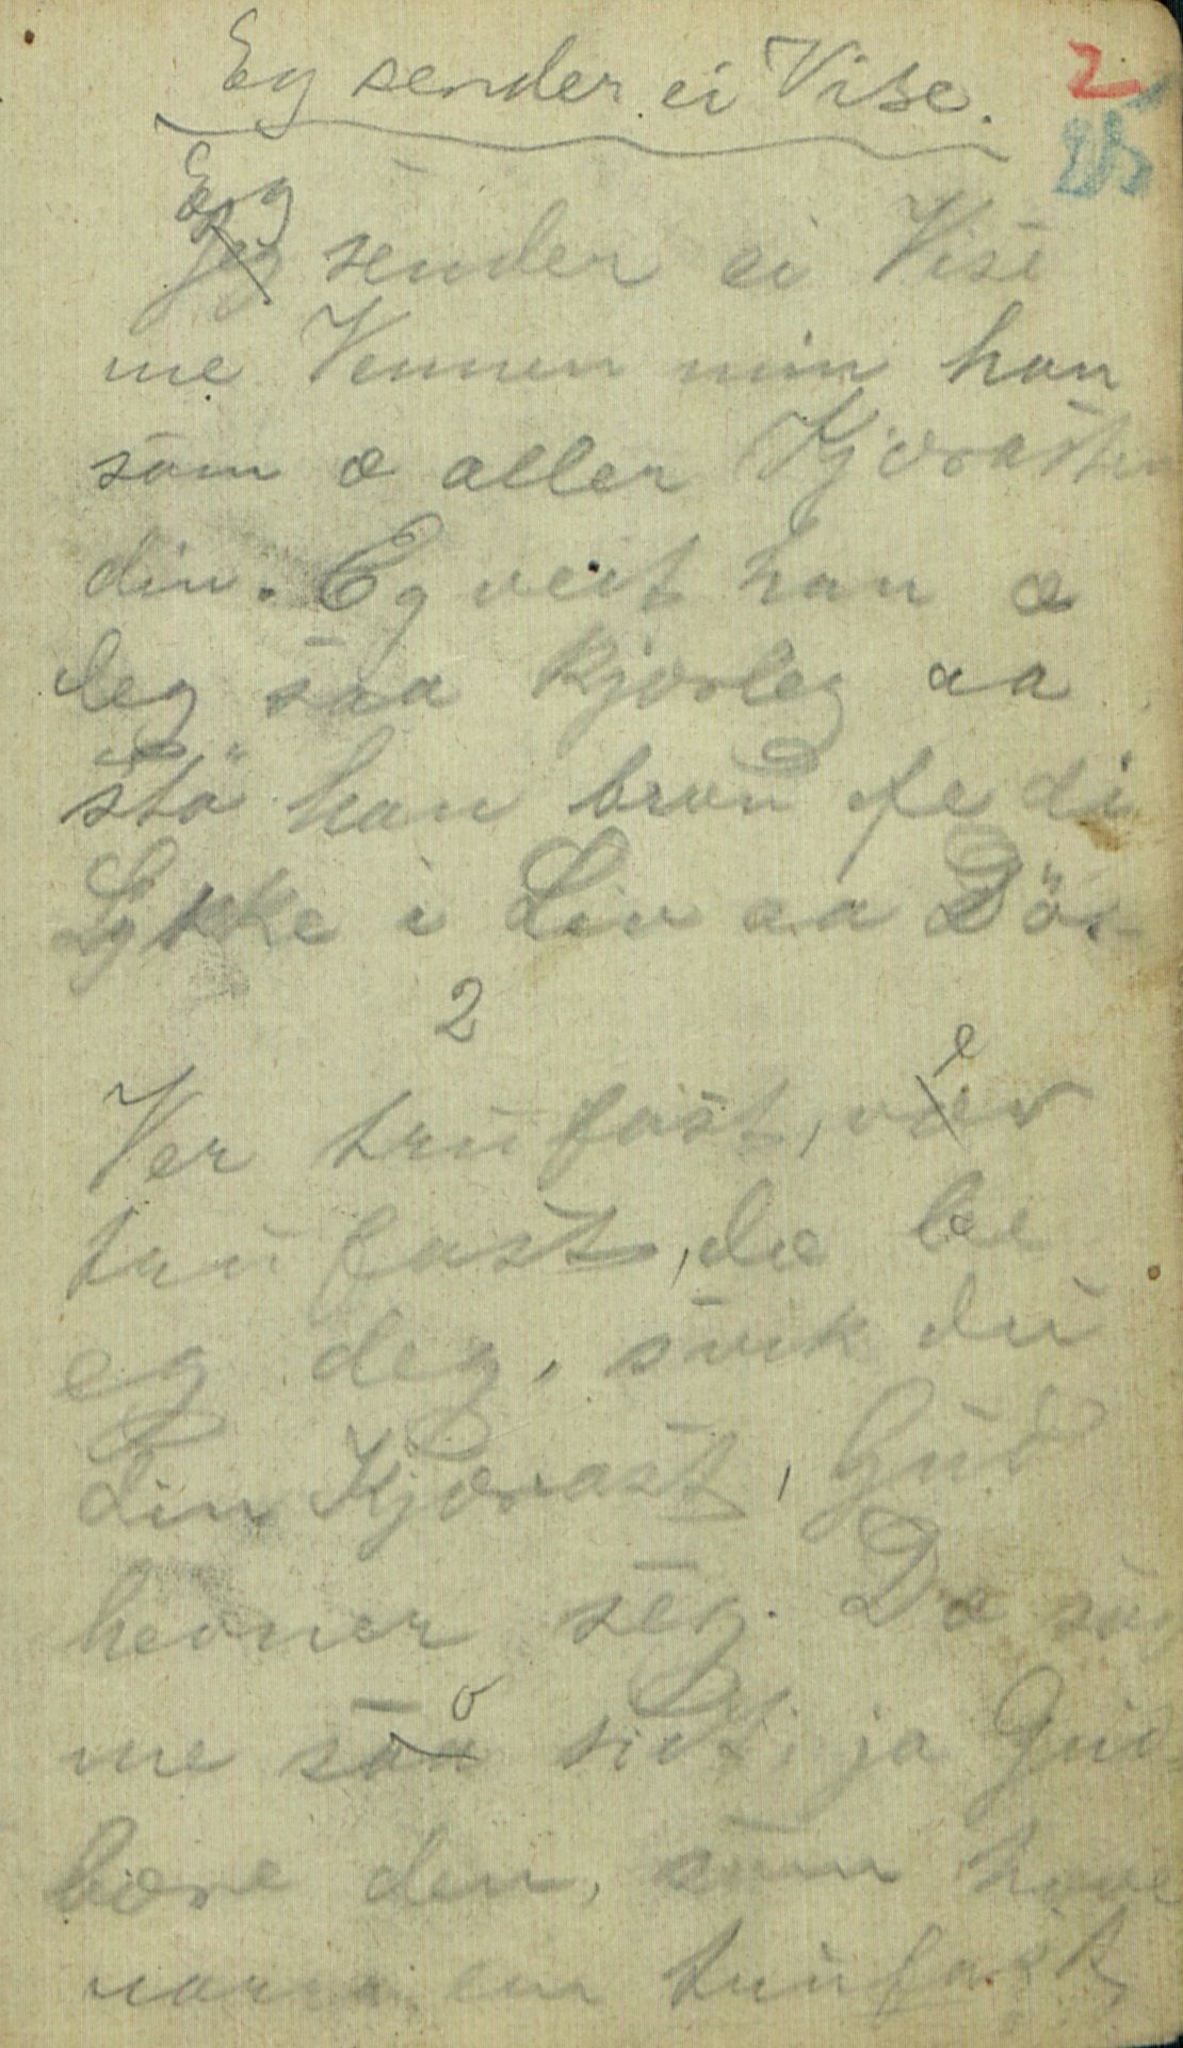 Eg sender ei Vise.
2
25
Eg
Jeg sender ei Vise
me Vennen min han
som æ aller Kjæraste
din. Eg veit han æ
deg saa kjærleg aa
stö han brau fe di
Lykke i Liv aa Dö.
2
Ver trufast, ver
trufast, dæ be
eg deg, svik du
din Kjærast, Gud
hevner seg. Dæ
me so sidt, ja Gud
bære den, som have
narra en trufast